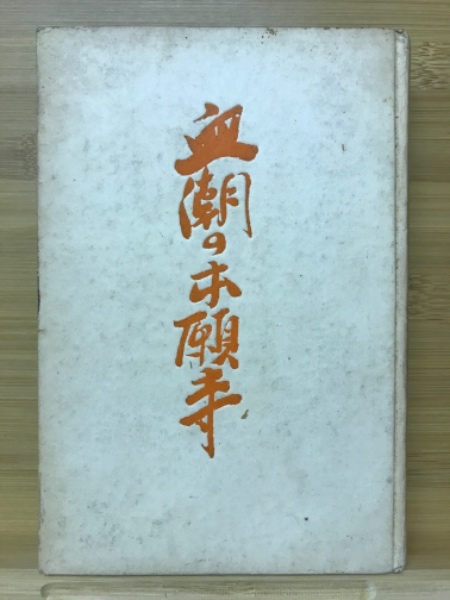 血潮の本願寺